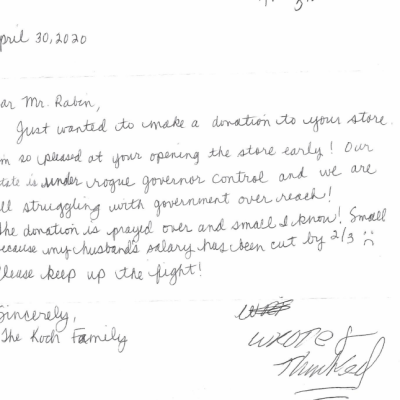 pril 30, 2020
ar Mr. Rabin,
Just wanted to make a donation to your store.
m so pleased at your opening the store early! Our
tate is under rogue governor control and we are
ll struggling with government over reach!
he donation is prayed over and small I know! Small
ecause my husband's salary has been cut by 2/3 :(
lease keep up the fight!
incerely,
The Koch Family
wrote &
Thanked